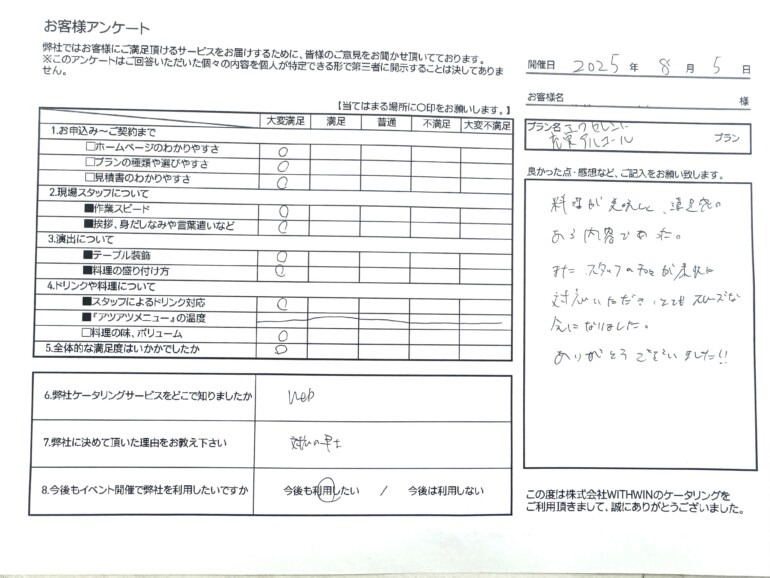 お客様アンケート
弊社ではお客様にご満足頂けるサービスをお届けするために、皆様のご意見をお聞かせ頂いております。
※このアンケートはご回答いただいた個々の内容を個人が特定できる形で第三者に開示することは決してありま
せん。
開催日 2025 年 8 月 5 日
お客様名 様
プラン名 エクセレント
充実アルコール プラン
【当てはまる場所に〇印をお願いします。】
大変満足 満足 普通 不満足 大変不満足
1.お申込み～ご契約まで
□ホームページのわかりやすさ ○
□プランの種類や選びやすさ ○
□見積書のわかりやすさ ○
2.現場スタッフについて
■作業スピード ○
■挨拶、身だしなみや言葉遣いなど ○
3.演出について
■テーブル装飾 ○
■料理の盛り付け方 ○
4.ドリンクや料理について
■スタッフによるドリンク対応 ○
■『アツアツメニュー』の温度
□料理の味、ボリューム ○
5.全体的な満足度はいかかでしたか ○
良かった点・感想など、ご記入をお願い致します。
料理が美味しく、満足感の
ある内容であった。
また スタッフの が に
対応いただき、とても スムーズな
会になりました。
ありがとうございました!!
6.弊社ケータリングサービスをどこで知りましたか Web
7.弊社に決めて頂いた理由をお教え下さい 対応の早さ
8.今後もイベント開催で弊社を利用したいですか 今後も利用したい / 今後は利用しない
この度は株式会社WITHWINのケータリングを
ご利用頂きまして、誠にありがとうございました。